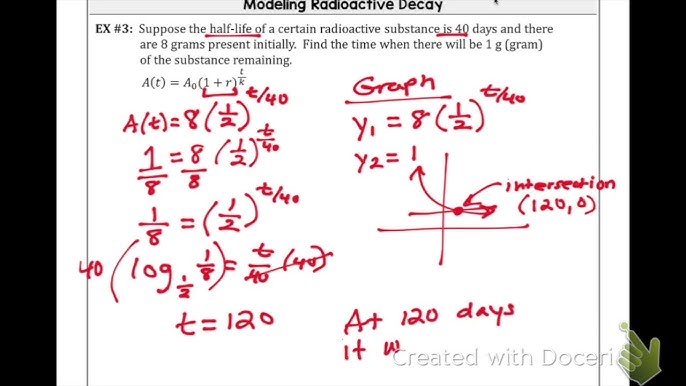 Modeling Radioactive Decay
EX #3: Suppose the half-life of a certain radioactive substance is 40 days and there
are 8 grams present initially. Find the time when there will be 1 g (gram)
of the substance remaining.
A(t) = A₀(1 + r)^(t/k)
A(t) = 8(1/2)^(t/40)
1/8 = 8/8 (1/2)^(t/40)
1/8 = (1/2)^(t/40)
40 (log_(1/2) 1/8) = t/40 (40)
t = 120
Graph
y₁ = 8(1/2)^(t/40)
y₂ = 1
intersection
(120, 0)
At 120 days
it w
Created with Doceri